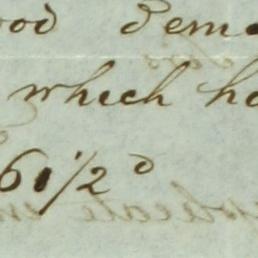 ood dem
which ha
61/2 d